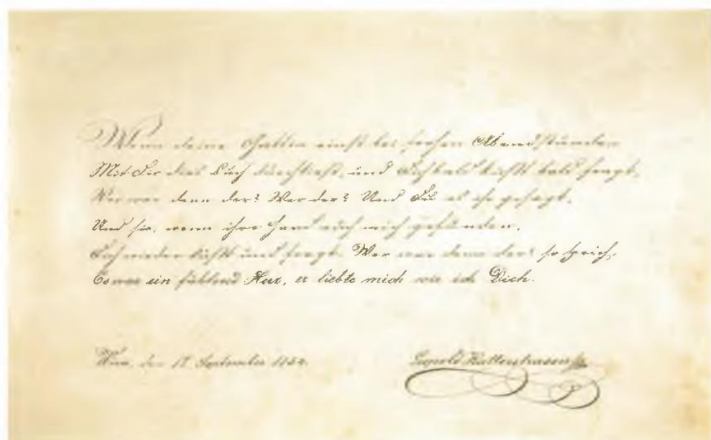 Wenn deine Gattin einst bei frohen Abendstunden
Mit Dir dies Buch durchliest, und Dich bald küßt bald fragt,
Wer war denn der? Wer der? Und Du es ihr gesagt,
Und sie, wenn ihre Hand auch mich gefunden,
Dich wieder küßt und fragt: Wer war denn der? so sprich,
Es war ein fühlend Herz, er liebte mich wie ich Dich.
Wien, den September
Leopold